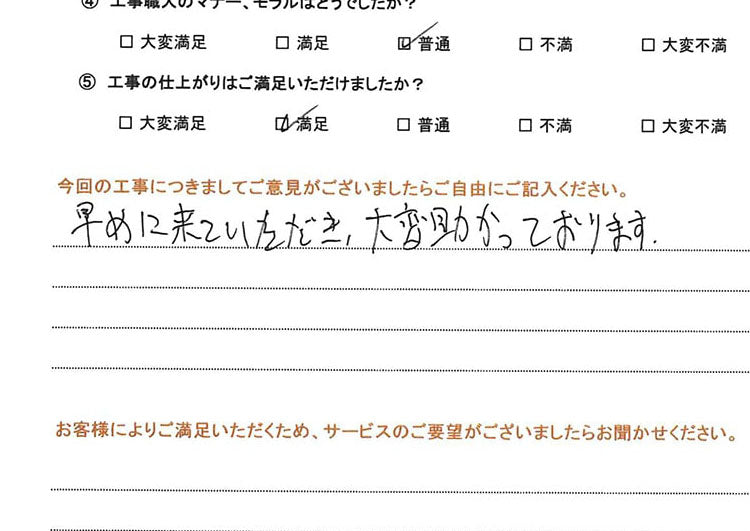 ④ 工事職人のマナー、モラルはどうでしたか？
□ 大変満足 □ 満足 ☑ 普通 □ 不満 □ 大変不満
⑤ 工事の仕上がりはご満足いただけましたか？
□ 大変満足 ☑ 満足 □ 普通 □ 不満 □ 大変不満
今回の工事につきましてご意見がございましたらご自由にご記入ください。
早めに来ていただき、大変助かっております.
お客様によりご満足いただくため、サービスのご要望がございましたらお聞かせください。